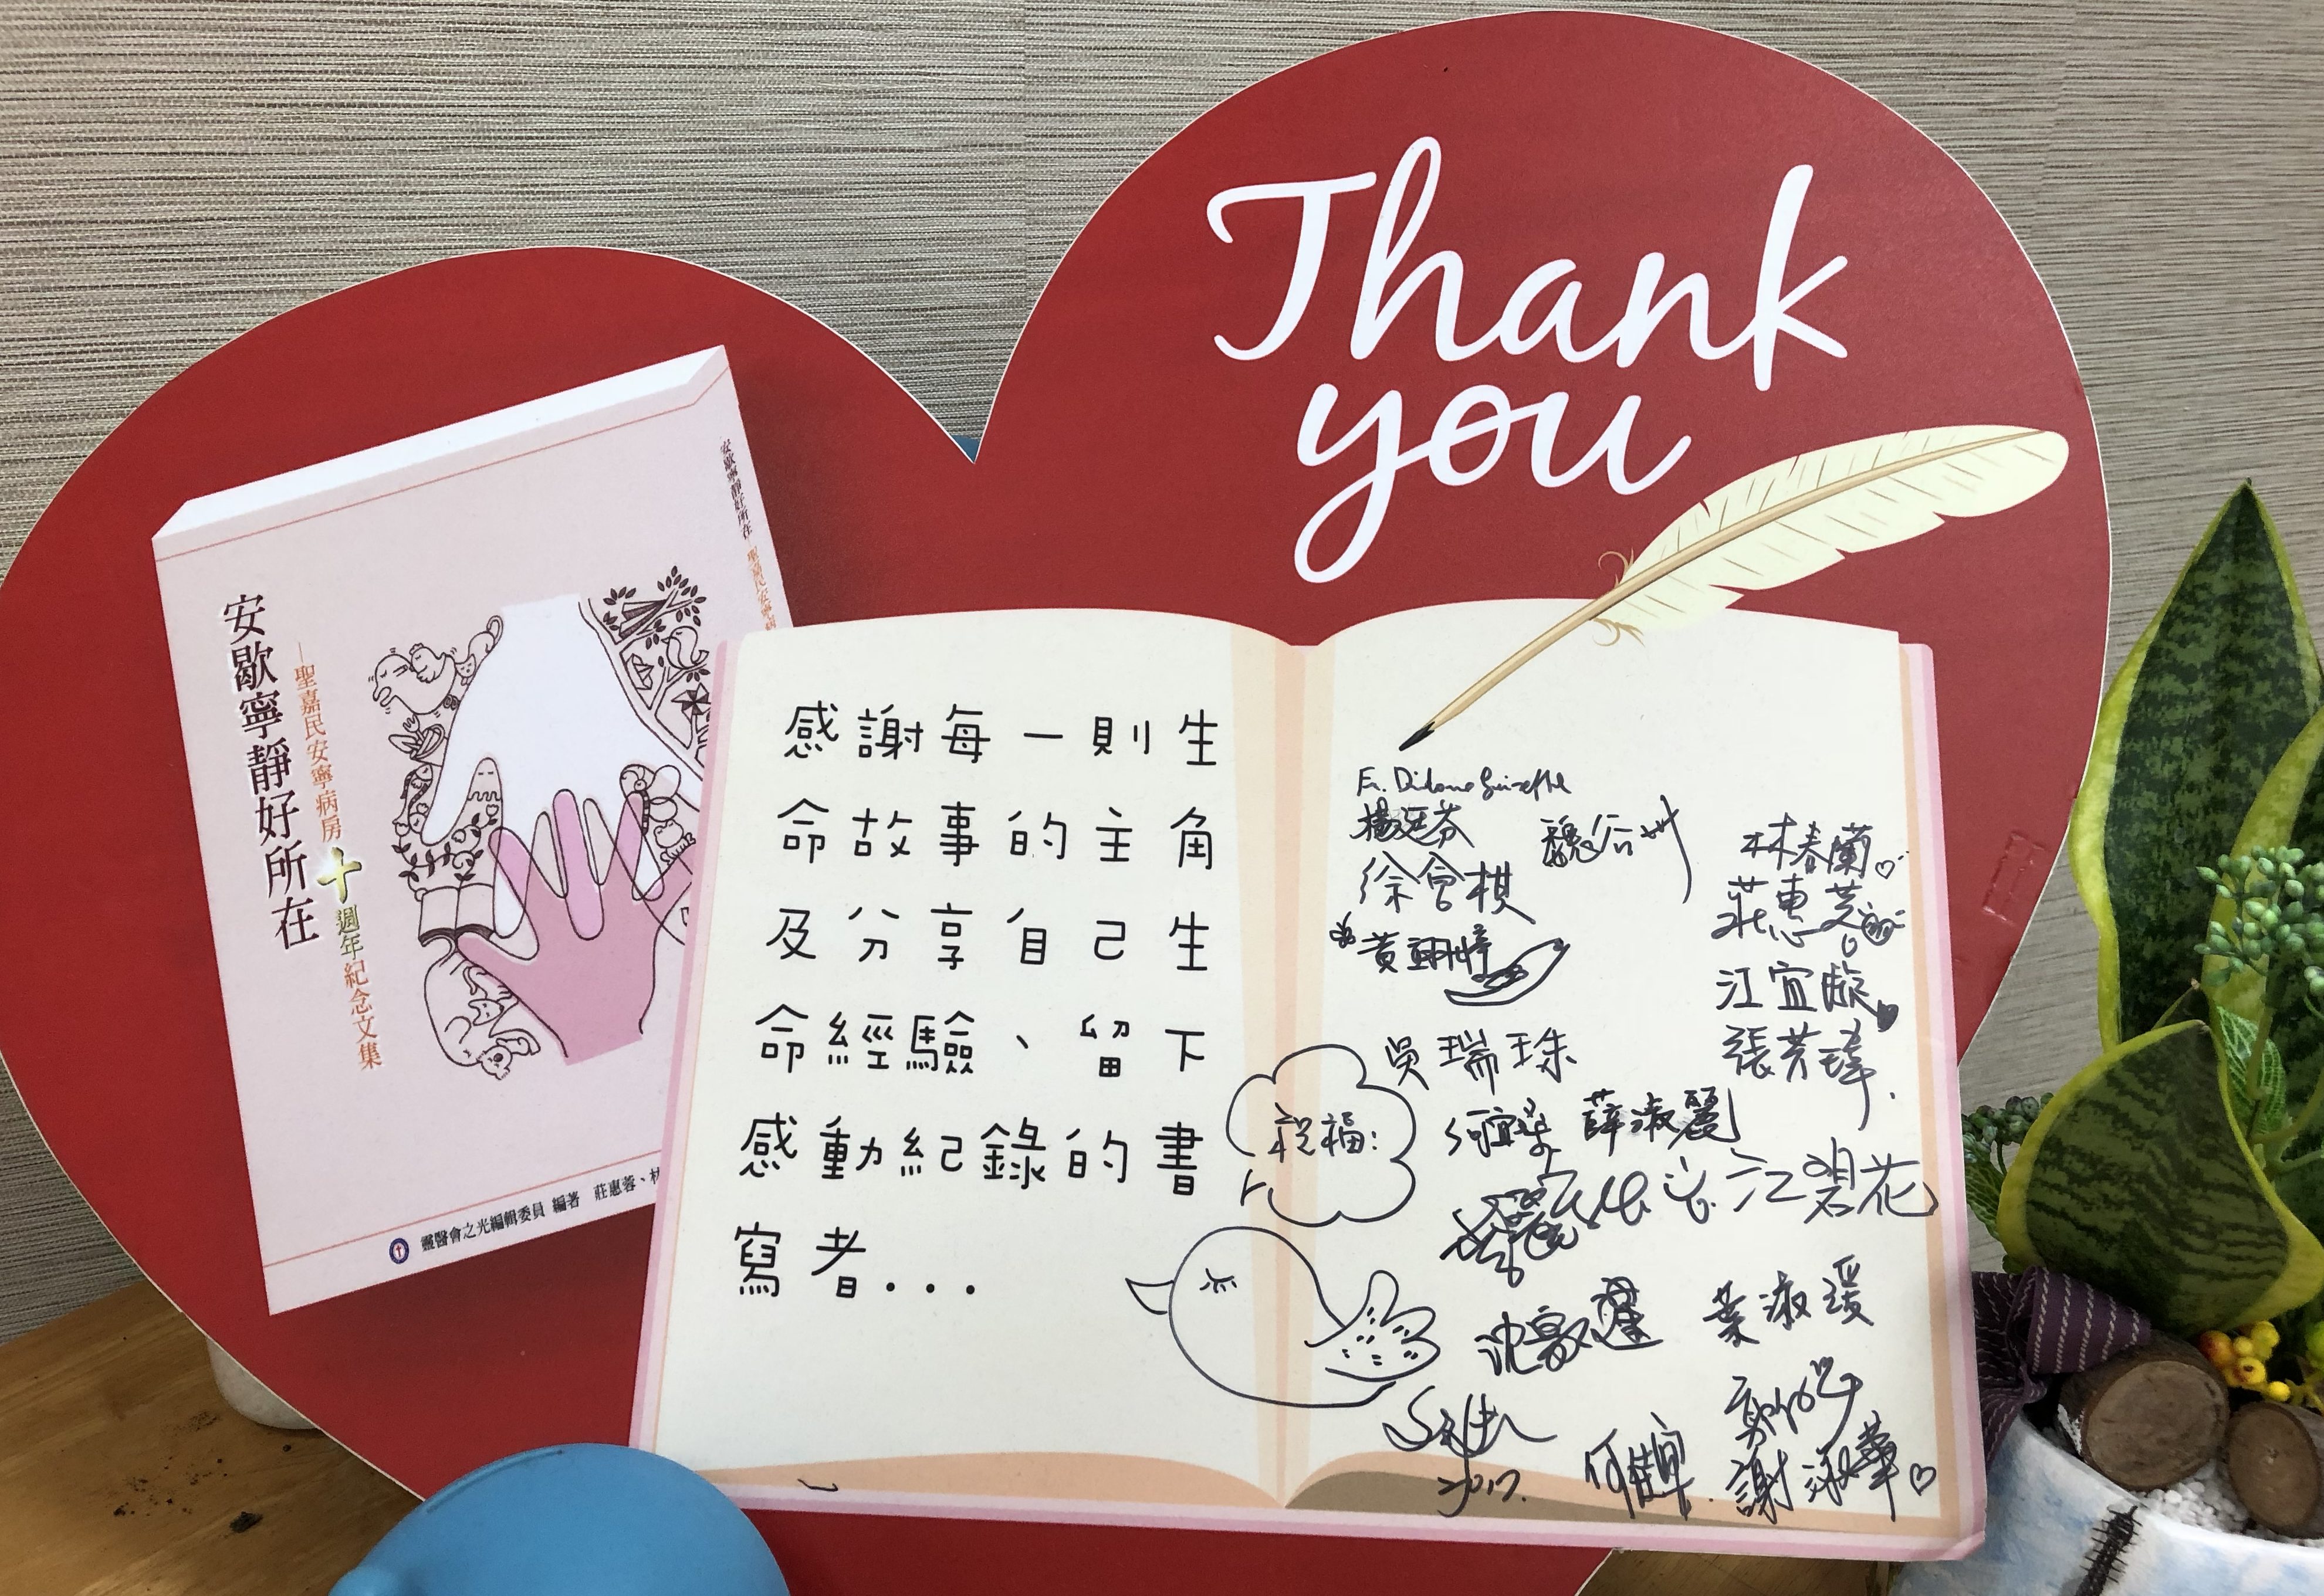 Thank
you
安歇寧靜好所在
聖嘉民安寧病房
安歇寧靜好所在
—聖嘉民安寧病房十週年紀念文集
靈醫會之光編輯委員 編著 莊惠蓉、林
感謝每一則生
命故事的主角
及分享自己生
命經驗、留下
感動紀錄的書
寫者...
Fr. Didone
徐會棋
林春蘭
莊惠
江宜
吳瑞珠
張芳瑋
祝福:
何宜
薛淑麗
江碧花
沈
葉淑瑗
2017.
何
謝淑華